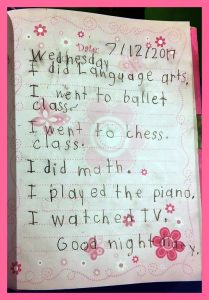 Date: 7/12/2017
Wednesday
I did Language arts.
I went to ballet
class.
I went to chess.
class.
I did math.
I played the piano.
I watched TV.
Good night diary.